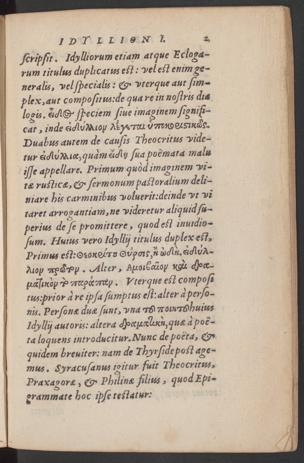 IDYLLION I. 2
scripsit. Idylliorum etiam atque Ecloga-
rum titulus duplicatus est: vel est enim ge-
neralis, vel specialis: & vterque aut sim-
plex, aut compositus: de qua re in nostris dia
logis. εἶδος speciem siue imaginem signifi-
cat, inde εἰδύλλιον λέγεται ὑποκοριστικῶς.
Duabus autem de causis Theocritus vide-
tur εἰδύλλια, quàm εἴδη sua poëmata malu
isse appellare. Primum quòd imaginem vi-
tæ rusticæ, & sermonum pastoralium deli-
niare his carminibus voluerit: deinde vt vi
taret arrogantiam, ne videretur aliquid su-
perius de se promittere, quod est inuidio-
sum. Huius vero Idyllij titulus duplex est,
Primus est: Θεοκρίτου Θύρσις, ἢ ᾠδὴ, εἰδύλ-
λιον πρῶτον. Alter, Ἀμοιβαῖον καὶ δρα-
ματικὸν Vterque est composi
tus: prior à re ipsa sumptus est: alter à perso-
nis. Personæ duæ sunt, vna τοῦ ποιητοῦ huius
Idyllij autoris: altera δραματικὴ, quæ à poë-
ta loquens introducitur. Nunc de poëta, &
quidem breuiter: nam de Thyrside post age-
mus. Syracusanus igitur fuit Theocritus,
Praxagoræ, & Philinæ filius, quod Epi-
grammate hoc ipse testatur: